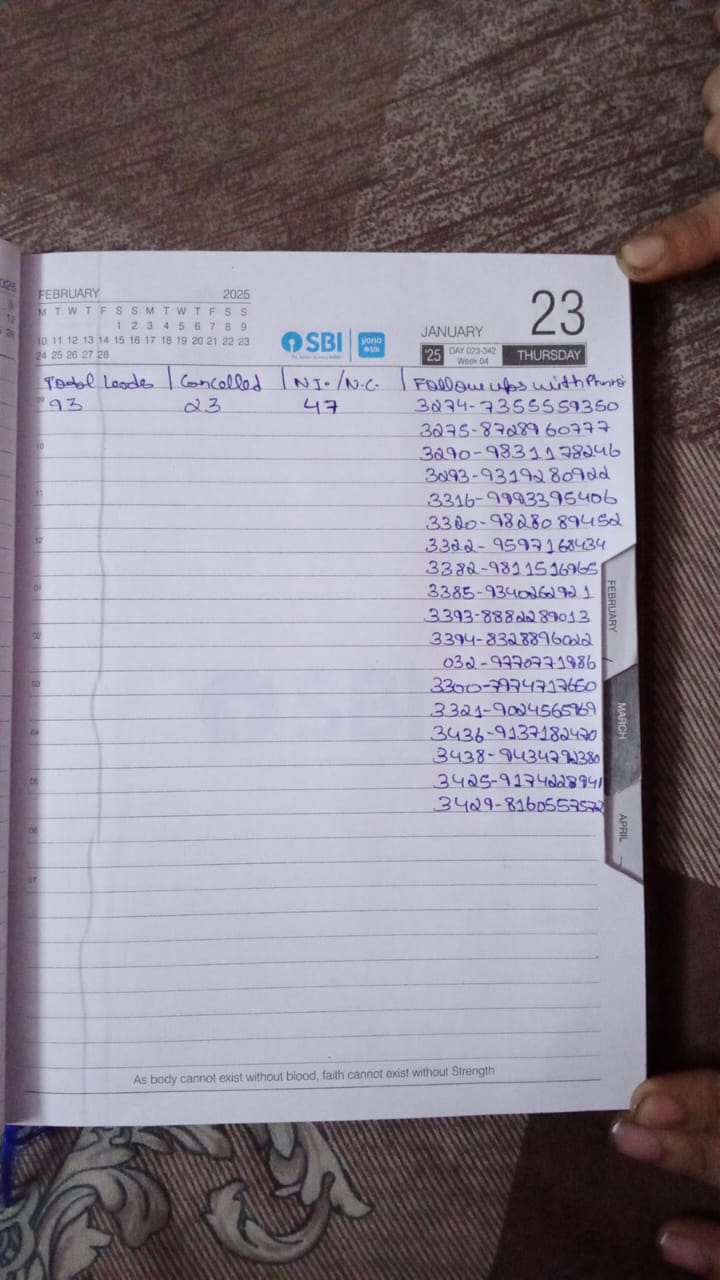 FEBRUARY 2025
M T W T F S S M T W T F S S
1 2 3 4 5 6 7 8 9
10 11 12 13 14 15 16 17 18 19 20 21 22 23
24 25 26 27 28
SBI
yono
SBI
JANUARY 23
'25 DAY 023-342
Week 04
THURSDAY
Total Leades | Cancelled | N.I./N.C. | Follow ups with
93 23 47 3274-7355559350
3275-8728960777
3290-9831178246
3293-9319280922
3316-9993395406
3320-9828089452
3322-9597168434
3382-9811516965
3385-9340262921
3393-8882289013
3394-8328896022
032-9770771986
3300-7974717650
3321-9024565969
3436-9137182470
3438-9434792380
3425-9174228941
3429-8160557572
09
10
11
12
01
02
03
04
05
06
07
FEBRUARY
MARCH
APRIL
As body cannot exist without blood, faith cannot exist without Strength